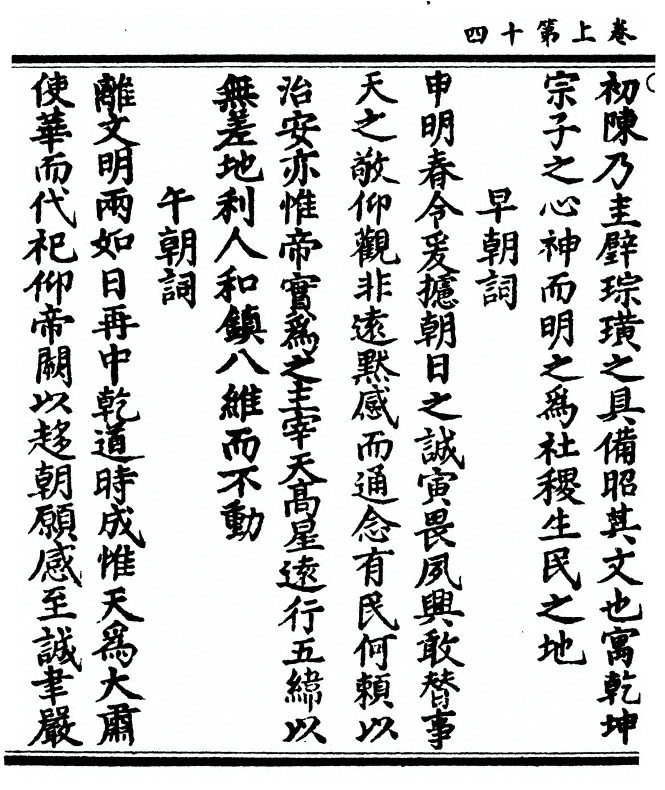 卷上第十四
初陳乃圭璧琮璜之具備昭其文也寓乾坤
宗子之心神而明之爲社稷生民之地
早朝詞
申明春令爰攄朝日之誠寅畏夙興敢替事
天之敬仰觀非遠默感而通念有民何賴以
治安亦惟帝實爲之主宰天高星遠行五緯以
無差地利人和鎮八維而不動
午朝詞
離文明兩如日再中乾道時成惟天爲大肅
使華而代祀仰帝闕以趍朝願感至誠聿嚴